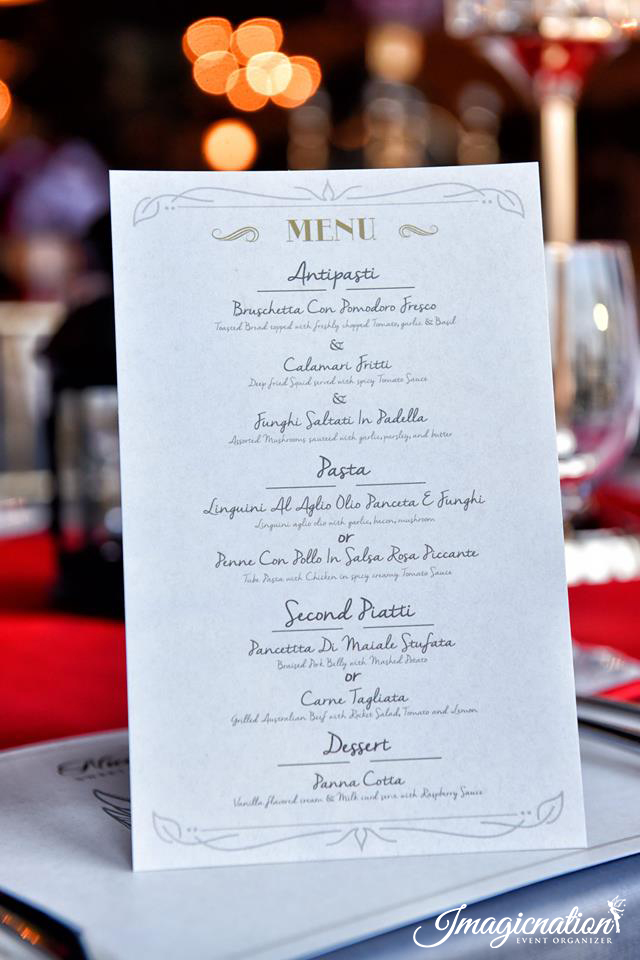 MENU
Antipasti
Bruschetta Con Pomodoro Fresco
Toasted Bread topped with freshly chopped Tomato, garlic & Basil
&
Calamari Fritti
Deep fried Squid served with spicy Tomato Sauce
&
Funghi Saltati In Padella
Assorted Mushrooms sauteed with garlic, parsley, and butter
Pasta
Linguini Al Aglio Olio Panceta E Funghi
Linguini aglio olio with garlic, bacon, mushroom
or
Penne Con Pollo In Salsa Rosa Piccante
Tube Pasta with Chicken in spicy creamy Tomato Sauce
Second Piatti
Pancettta Di Maiale Stufata
Braised Pork Belly with Mashed Potato
or
Carne Tagliata
Grilled Australian Beef with Rocket Salad, Tomato and Lemon
Dessert
Panna Cotta
Vanilla flavored cream & Milk curd serve with Raspberry Sauce
Imagicnation
EVENT ORGANIZER